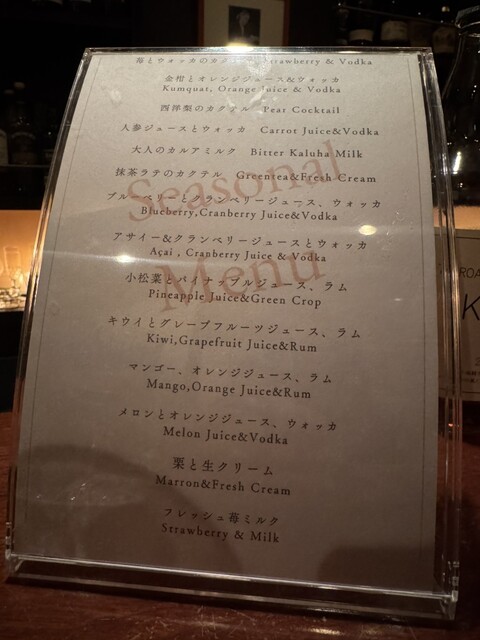 苺とウォッカのカ Strawberry & Vodka
金柑とオレンジジュース&ウォッカ
Kumquat, Orange Juice & Vodka
西洋梨のカクテル Pear Cocktail
人参ジュースとウォッカ Carrot Juice&Vodka
大人のカルアミルク Bitter Kaluha Milk
抹茶ラテのカクテル Greentea&Fresh Cream
ブルーベリーとクランベリージュース、ウォッカ
Blueberry,Cranberry Juice&Vodka
Seasonal
アサイー&クランベリージュースとウォッカ
Açai , Cranberry Juice & Vodka
Menu
小松菜とパイナップルジュース、ラム
Pineapple Juice&Green Crop
キウイとグレープフルーツジュース、ラム
Kiwi,Grapefruit Juice&Rum
マンゴー、オレンジジュース、ラム
Mango,Orange Juice&Rum
メロンとオレンジジュース、ウォッカ
Melon Juice&Vodka
栗と生クリーム
Marron&Fresh Cream
フレッシュ苺ミルク
Strawberry & Milk